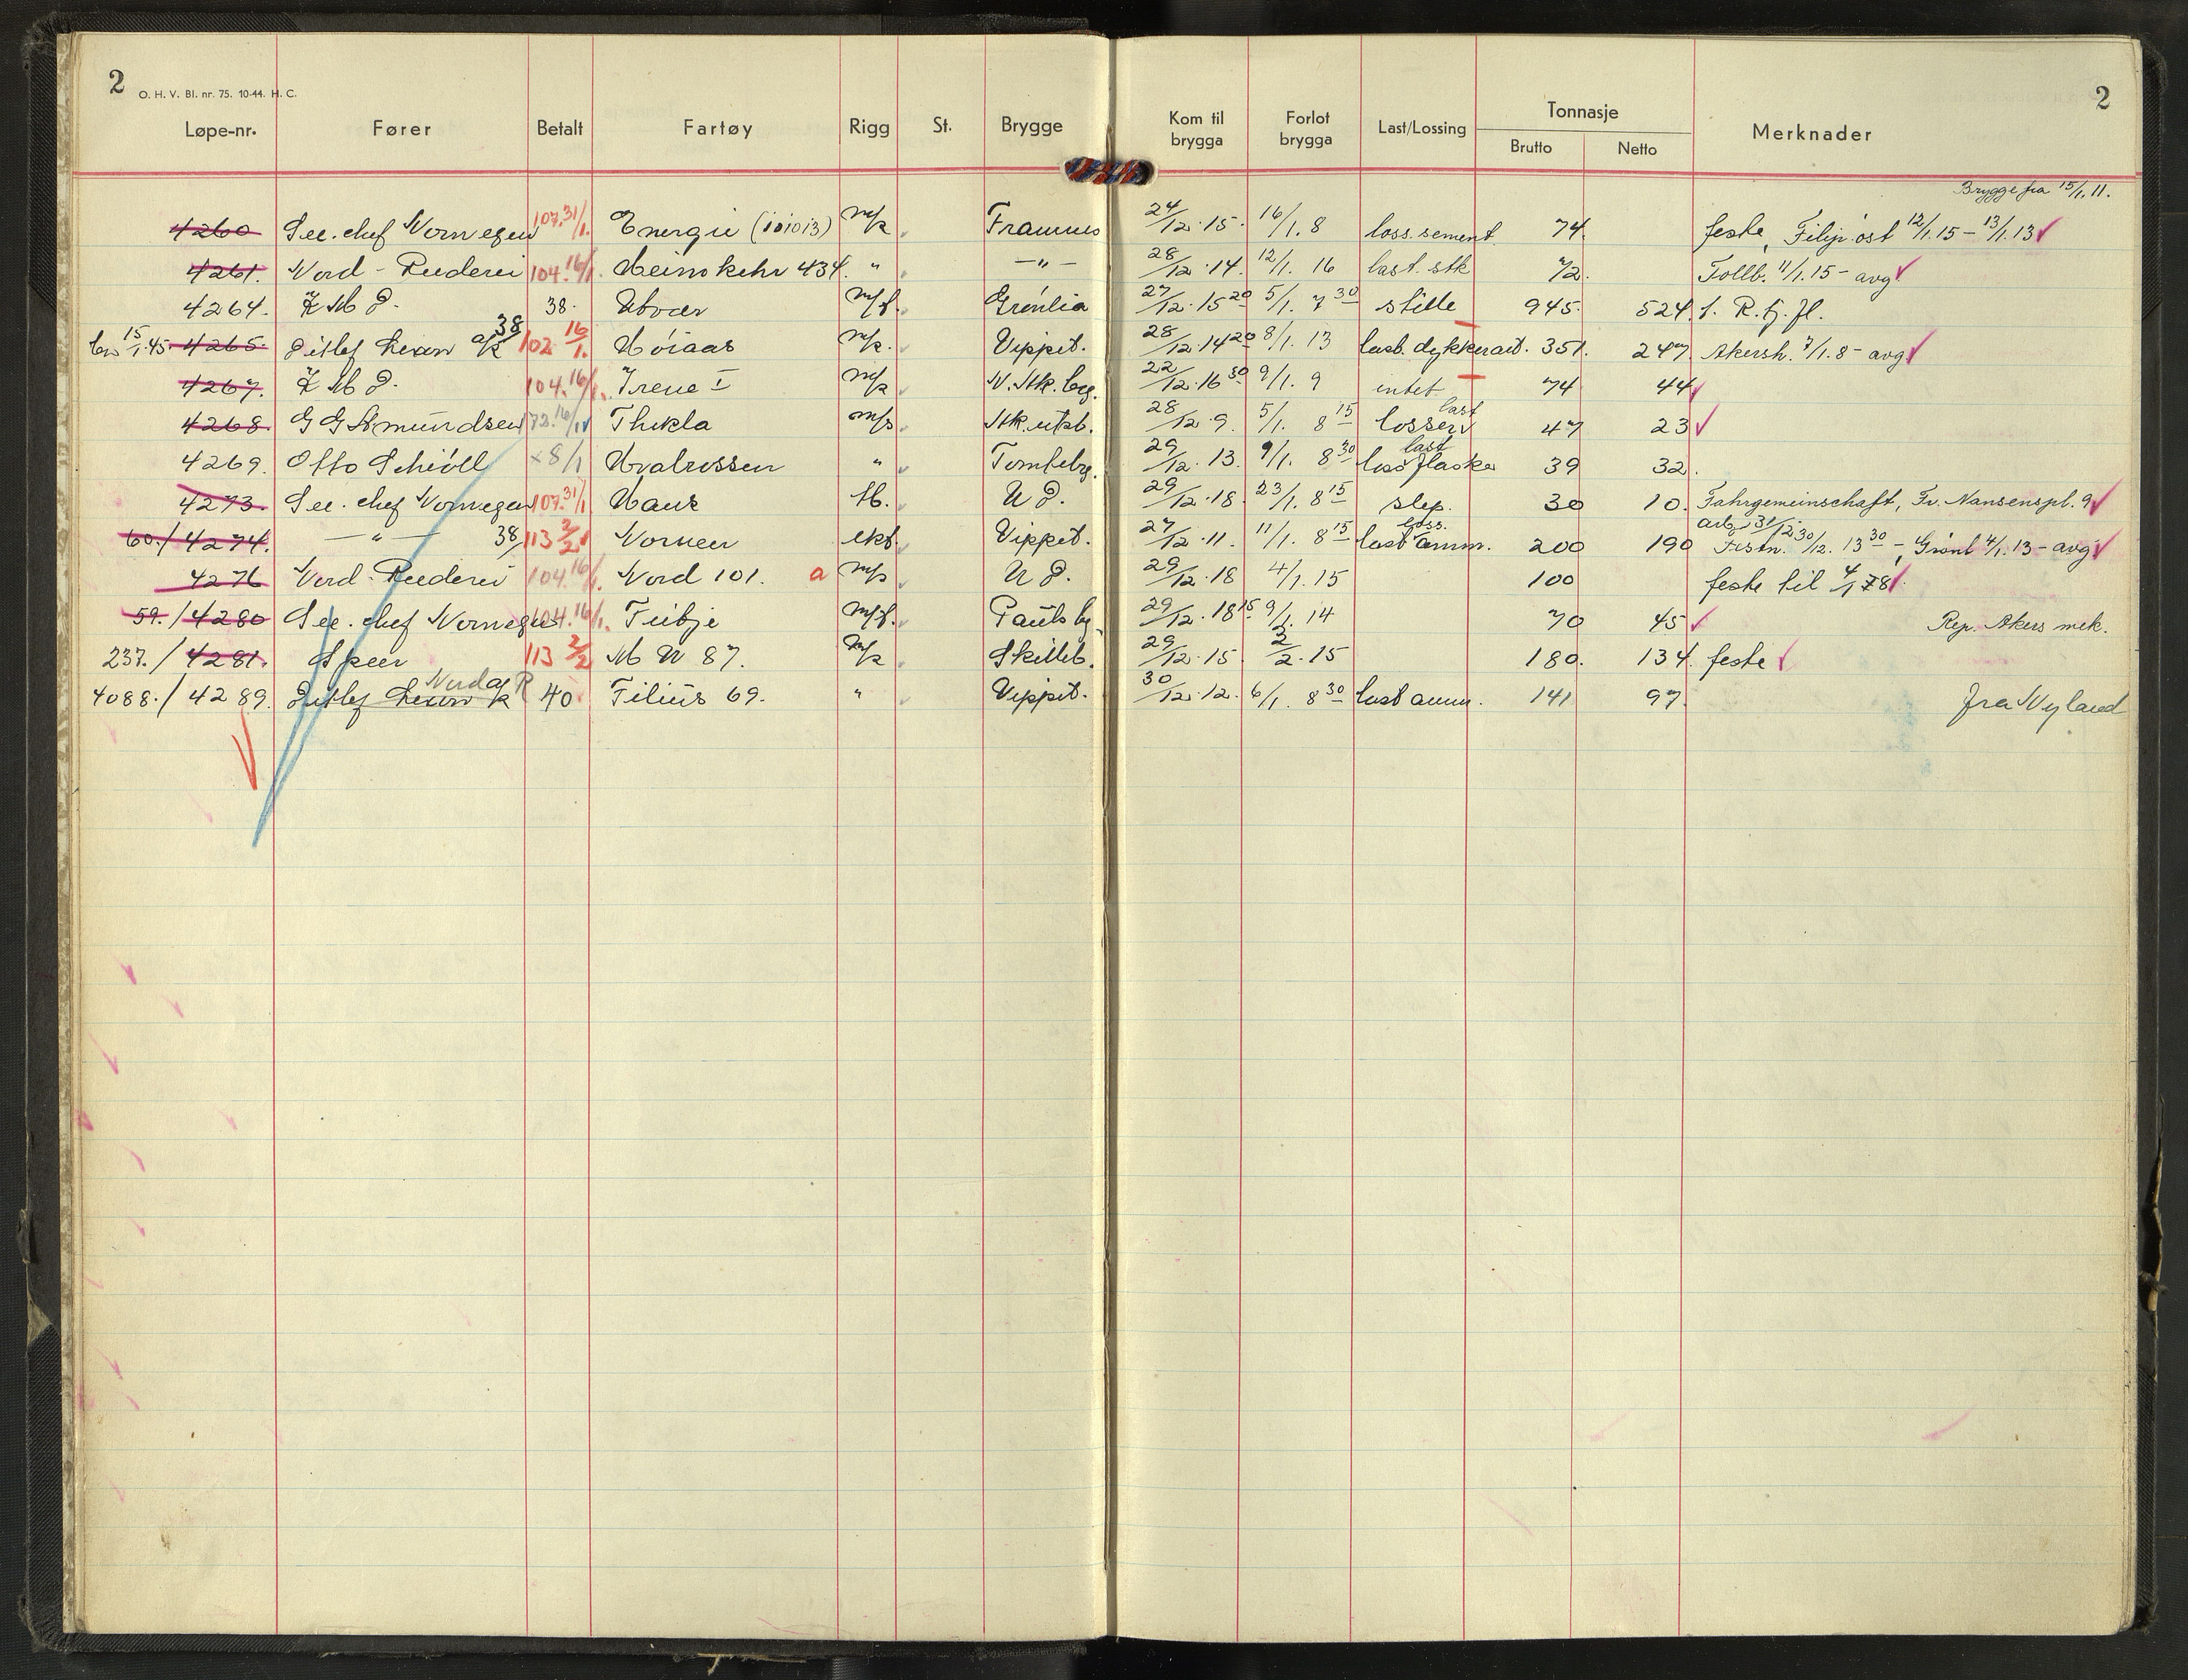 2
O. H. V. Bl. nr. 75. 10-44. H. C.
2
Løpe-nr. Fører Betalt Fartøy Rigg St. Brygge Kom til brygga Forlot brygga Last/Lossing Tonnasje Brutto Netto Merknader
Brygge fra 15/1. 11.
4260 See. chef Norwegen 107. 31/1. Energie (101013) m/k Framnes 24/12. 15. 16/1. 8 loss. sement. 74. feste, Filip. øst 12/1. 15 – 13/1. 13
4261. Nord - Reederei 104. 16/1. Heimkehr 434. " —"— 28/12. 14. 12/1. 16 last. stk 72. Tollb. 11/1. 15 – avg
4264. K M D. 38. Grønlia 27/12. 15 20 5/1. 7 30 stille 945. 524. f. R. Fj. Fl.
15/1.45 4265. Ditlef Lexow a/k 38 102. 16/1. Høiaas m/k. Vippet. 28/12. 14 20 8/1. 13 last. dykkerait. 351. 247 Akersh. 7/1. 8 – avg
4267. K M D. 104. 16/1. Irene I m/k N. Stk. brg. 22/12. 16 30 9/1. 9 intet 74 44
4268. G G Amundsen 72. 16/1 Thekla m/s Stk. utst. 28/12. 9. 5/1. 8 15 losser last 47 23
4269. Otto Schiøll ×8/1 Hvalrossen " Tomtebrg. 29/12. 13. 9/1. 8 30 loss flasker last 39 32.
4273. See. chef Norwegen 107. 31/1 Hans Sl. U D. 29/12. 18. 23/1. 8 15 slep. 30 10. Fahrgemeinschaft, Fr. Nansenspl. 9
60./4274. — " — 38/ 113 2/2 Vippet. 27/12. 11. 11/1. 8 15 last amm. loss. 200 190 30/12. 13 30 – Grønl. 4/1. 13 – avg
4276 Nord-Reederei 104. 16/1. Nord 101. a m/s U D. 29/12. 18 4/1. 15 100 feste til 4/1 8
59./4280 See. chef Norwegen 104. 16/1. Tribje Pauls b. 29/12. 18 15 9/1. 14 70 45 Rep. Akers mek.
237./4281. Speer 113 2/2 M U 87. m/k Skilleb. 29/12. 15 2/2. 15 180. 134. feste
4088./4289. Ditlef Lexow k Nord a R 40 Filius 69. " Vippet. 30/12. 12. 6/1. 8 30 last amm. 141 97 fra Nyland